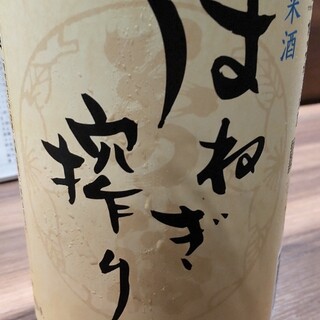 米酒
はねぎ
搾り